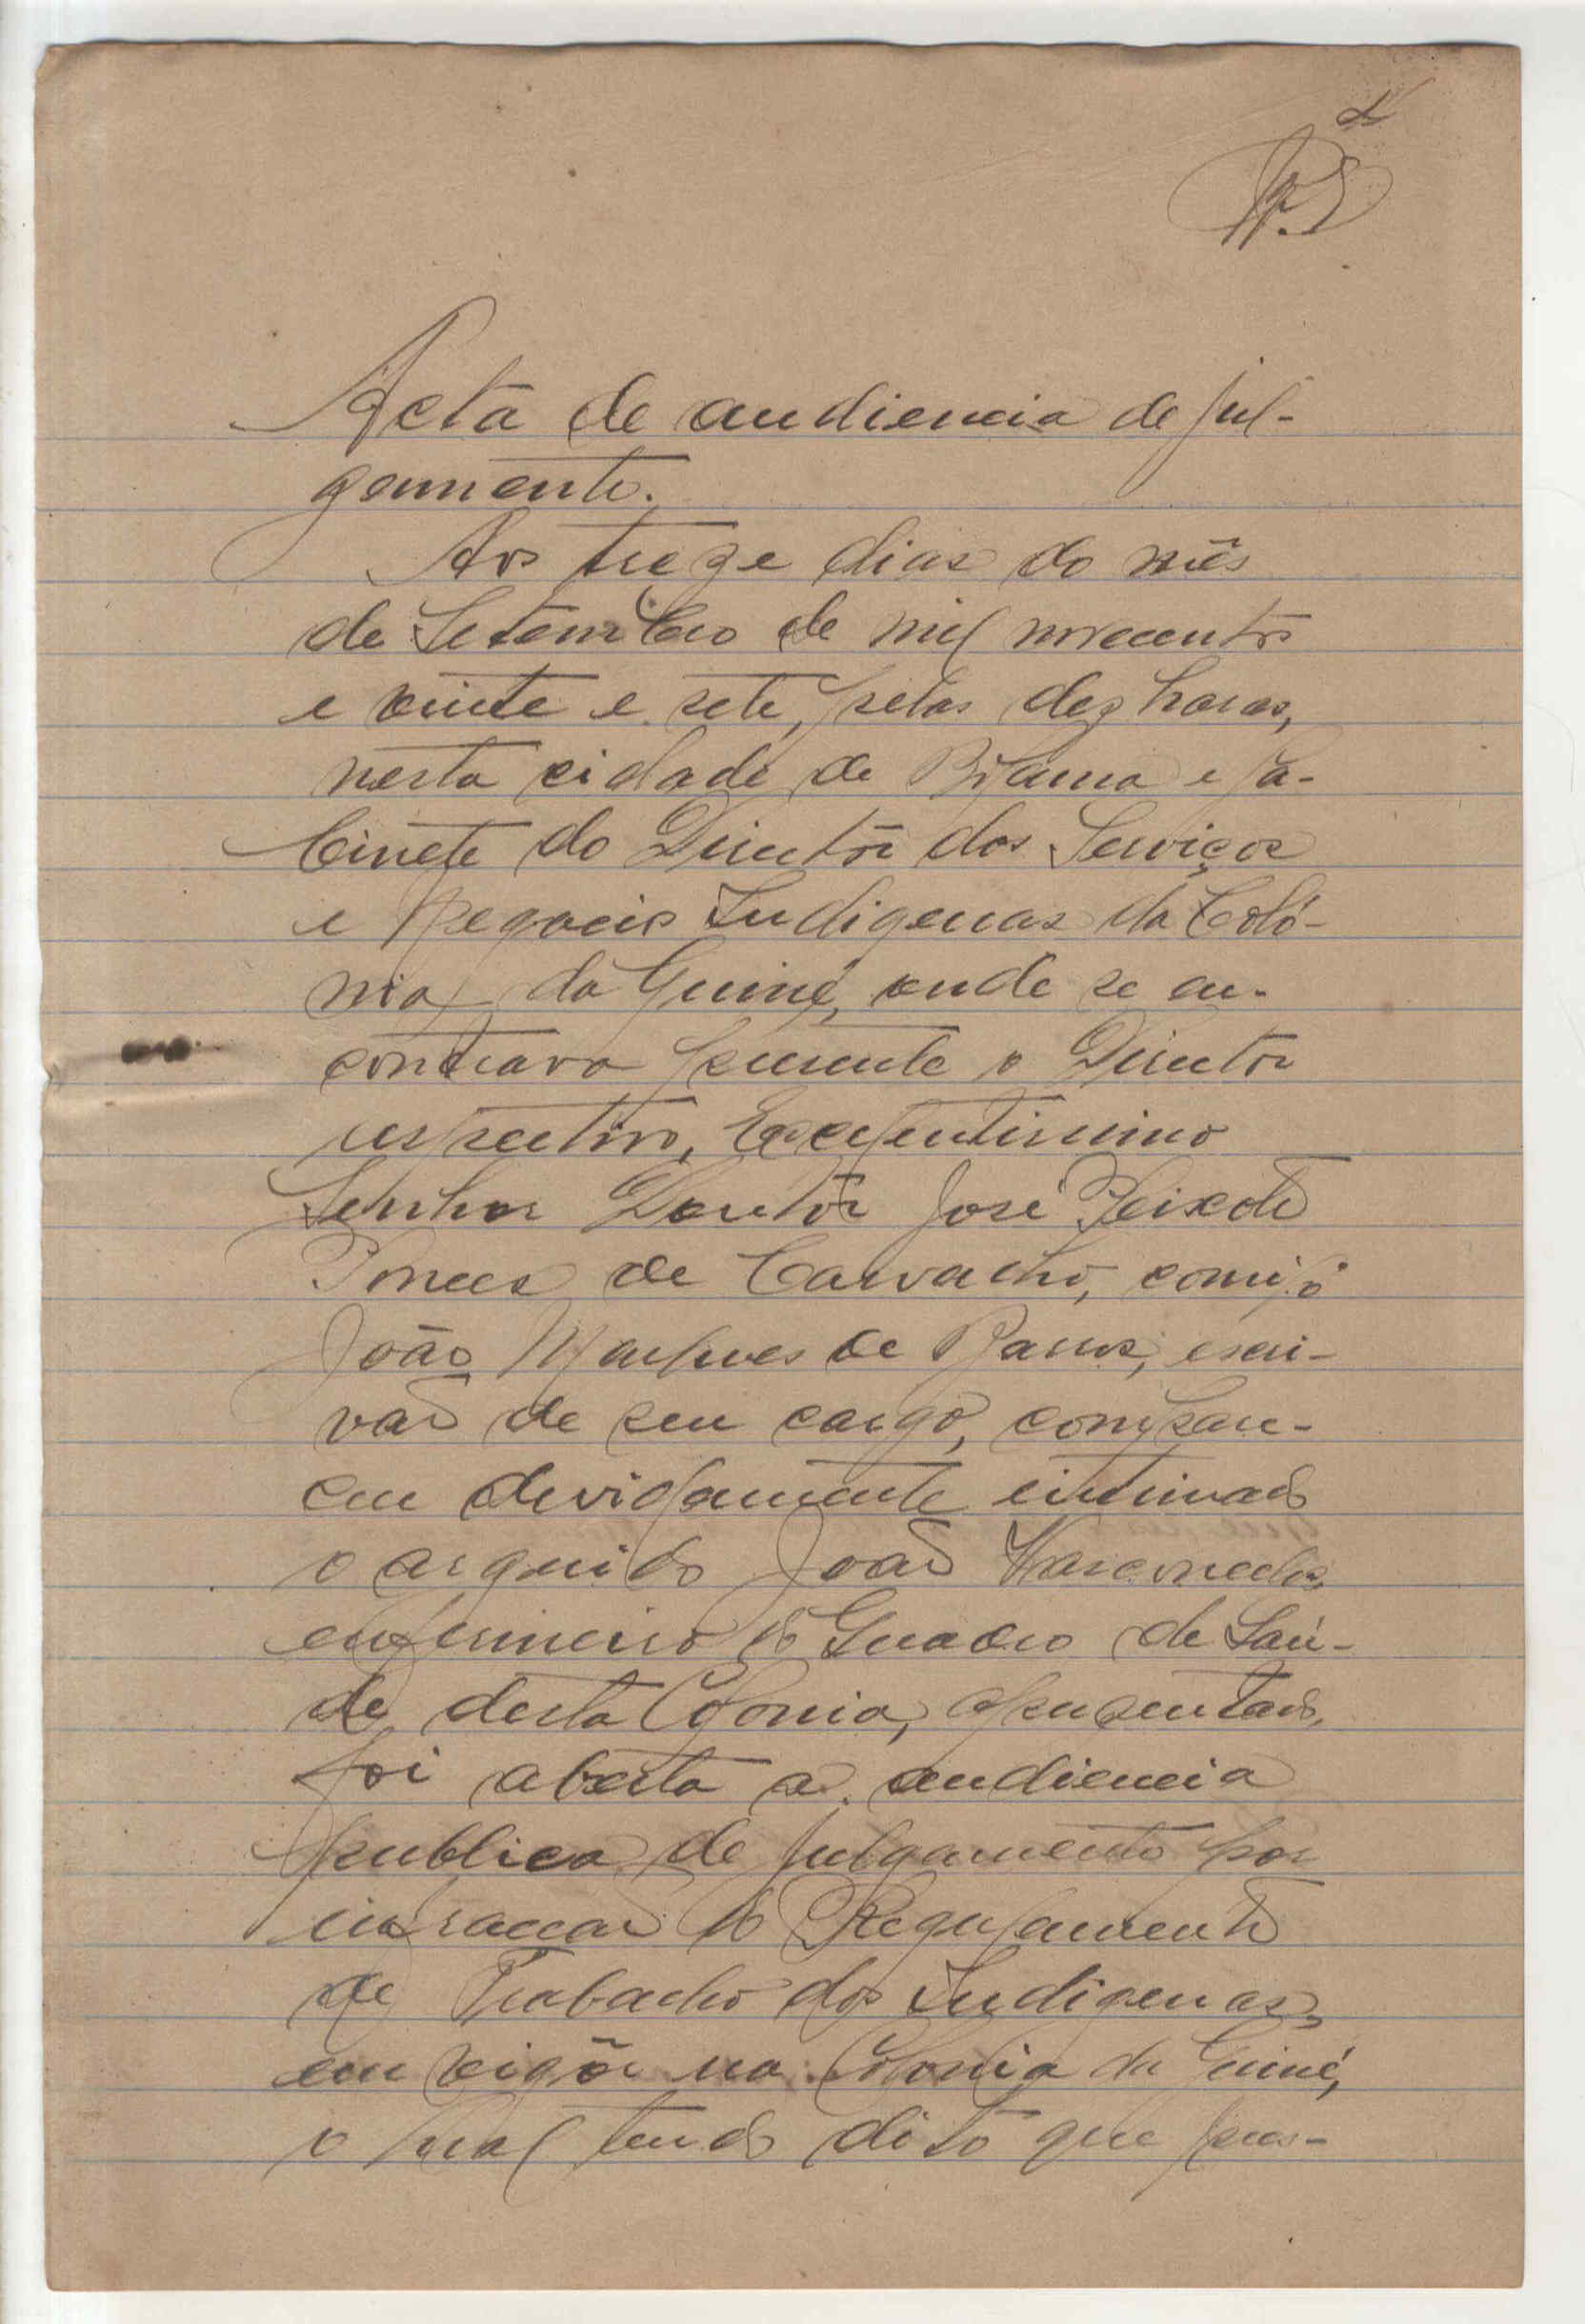 Acta de audiencia de jul-
gamento.
Aos treze dias do mês
de Setembro de mil novecentos
e vinte e sete, pelas dez horas,
nesta cidade de Bolama e ga-
binete do Director dos Serviços
e Negocios Indigenas da Coló-
nia da Guiné, onde se en-
contrava presente o Director
respectivo, Excelentissimo
Senhor Doutôr José Peixoto
Ponces de Carvalho, comigo
João Marques de Barros, escri-
vão de seu cargo, compare-
ceu devidamente intimado
o arguido João Vasconcelos,
enfermeiro do Quadro de Saú-
de desta Colonia, aposentado,
foi aberta a audiencia
publica de julgamento por
infracção do Regulamento
de Trabalho dos Indigenas,
em vigôr na Colonia da Guiné,
o qual tendo dito que pres-